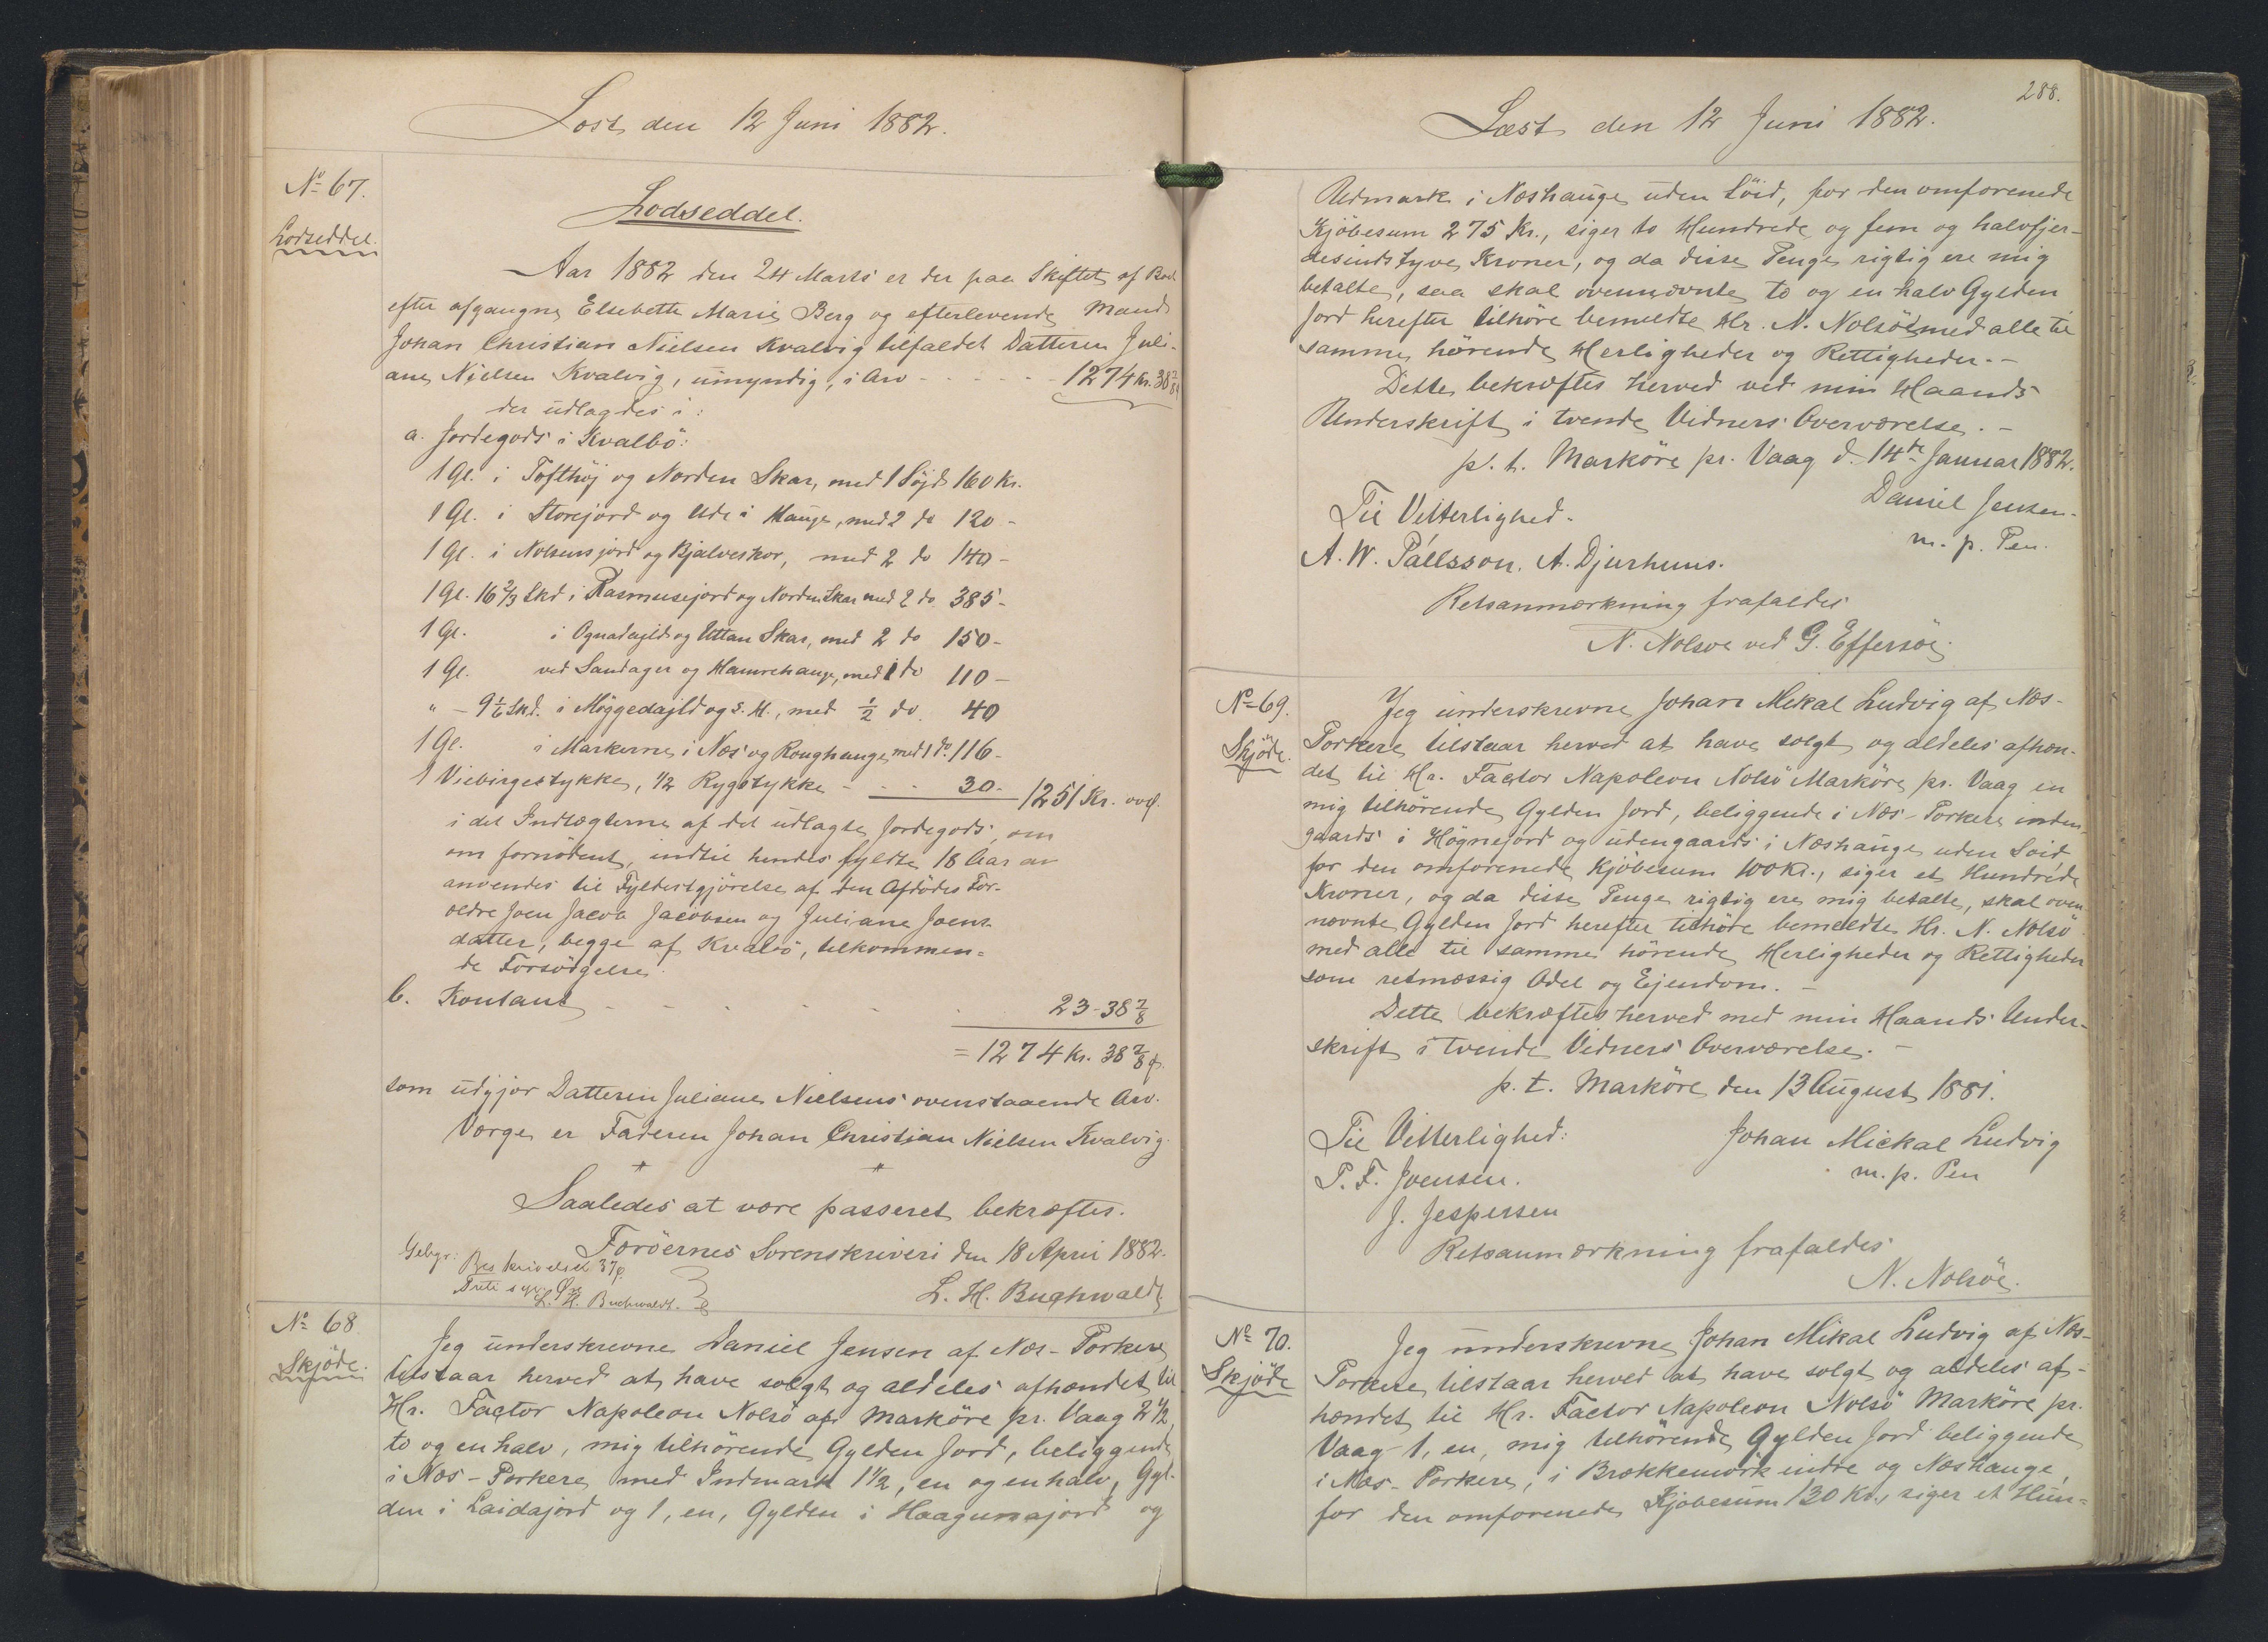 Læst den 12 Juni 1882.
No 67.
Lodseddel.
Lodseddel.
Aar 1882 den 24 Marts er der paa Skiftet af Boet
efter afgangne Elsebette Marie Berg og efterlevende Mand
Johan Christian Nielsen Kvalvig tilfaldet Datteren Juli-
ane Nielsen Kvalvig, umyndig, i Arv - - - - - 1274 Kr. 38 7/8
der udlagdes i:
a. Jordegods i Kvalbö:
1 Gl. i Tofthöj og Norden Skar, med 1 Söjd 160 Kr.
1 Gl. i Storejord og Ude i Hauge, med 2 do 120 -
1 Gl. i Nolsensjord og Bjalveskor, med 2 do 140 -
1 Gl. 16 2/3 Skd i Rasmusejord og Norden Skar med 2 do 385 -
1 Gl. i Ognadejld og Uttan Skar, med 2 do 150 -
1 Gl. ved Sandager og Hamrehauge, med 1 do 110 -
" - 9 1/6 Skd. i Möggedajld og s. H., med 1/2 do. 40
1 Gl. i Markerne i Næs og Roughauge med 1 do. 116 -
1 Viebirgestykke, 1/2 Rygstykke - - - 30. - 1251 Kr.
i det Indtægterne af det udlagte Jordegods, om
om fornødent, indtil hendes fyldte 18 Aar an
anvendes til Fyldestgjörelse af den Afdödes For-
ældre Joen Jacob Jacobsen og Juliane Joens-
datter, begge af Kvalbö, tilkommen-
de Forsörgelse.
b. Kontant - - - - - 23 - 38 7/8
= 1274 Kr. 38 7/8 Ø.
som udgjör Datteren Juliane Nielsens ovenstaaende Arv.
Værge er Faderen Johan Christian Nielsen Kvalvig.
Saaledes at være passeret bekræftes.
Færöernes Sorenskriveri den 18 April 1882.
L. H. Buchwaldt
Gebyr: Beskrivelse 37
L. H. Buchwaldt.
No 68
Skjöde.
Jeg underskrevne Daniel Jensen af Næs-Porkere
tilstaar herved at have solgt og aldeles afhændet til
Hr. Factor Napoleon Nolsö af Marköre pr. Vaag 2 1/2,
to og en halv, mig tilhörende Gylden Jord, beliggende
i Næs-Porkere med Indmark 1 1/2, en og en halv, Gyl-
den i Laidajord og 1, en, Gylden i Haagunajord og
288.
Læst den 12 Juni 1882.
Udmark i Næshauge uden Söid, for den omforenede
Kjöbesum 275 Kr., siger to Hundrede og fem og halvfjer-
desindstyve Kroner, og da disse Penge rigtig ere mig
betalte, saa skal ovennævnte to og en halv Gylden
Jord herefter tilhöre bemeldte Hr. N. Nolsöe med alle til
samme hörende Herligheder og Rettigheder. -
Dette bekræftes herved ved min Haands
Underskrift i tvende Vidners Overværelse. -
p. t. Marköre pr. Vaag d. 14de Januar 1882.
Daniel Jensen.
m. p. Pen.
Til Vitterlighed.
A. W. Pállsson. A. Djurhuus.
Retsanmærkning frafaldes
N. Nolsöe ved G. Effersöe.
No 69.
Skjöde.
Jeg underskrevne Johan Mikal Ludvig af Næs-
Porkere tilstaar herved at have solgt og aldeles afhæn-
det til Hr. Factor Napoleon Nolsö Marköre pr. Vaag en
mig tilhörende Gylden Jord, beliggende i Næs-Porkere inden-
gaards i Högnejord og udengaards i Næshauge uden Soid
for den omforenede Kjöbesum 100 Kr., siger et Hundrede
Kroner, og da disse Penge rigtig ere mig betalte, skal oven
nævnte Gylden Jord herefter tilhöre bemeldte Hr. N. Nolsö
med alle til samme hörende Herligheder og Rettigheder
som retmæssig Odel og Ejendom. -
Dette bekræftes herved med min Haands Under-
skrift i tvende Vidners Overværelse. -
p. t. Marköre den 13 August 1881.
Til Vitterlighed:
Johan Mickal Ludvig
m. p. Pen
P. F. Joensen.
J. Jespersen
Retsanmærkning frafaldes
N. Nolsöe.
No 70.
Skjöde
Jeg underskrevne Johan Mikal Ludvig af Næs-
Porkere tilstaar herved at have solgt og aldeles af-
hændet til Hr. Factor Napoleon Nolsö Marköre pr.
Vaag 1, en, mig tilhörende Gylden Jord beliggende
i Næs-Porkere, i Brækkemörk indre og Næshauge,
for den omforenede Kjöbesum 130 Kr., siger et Hun-